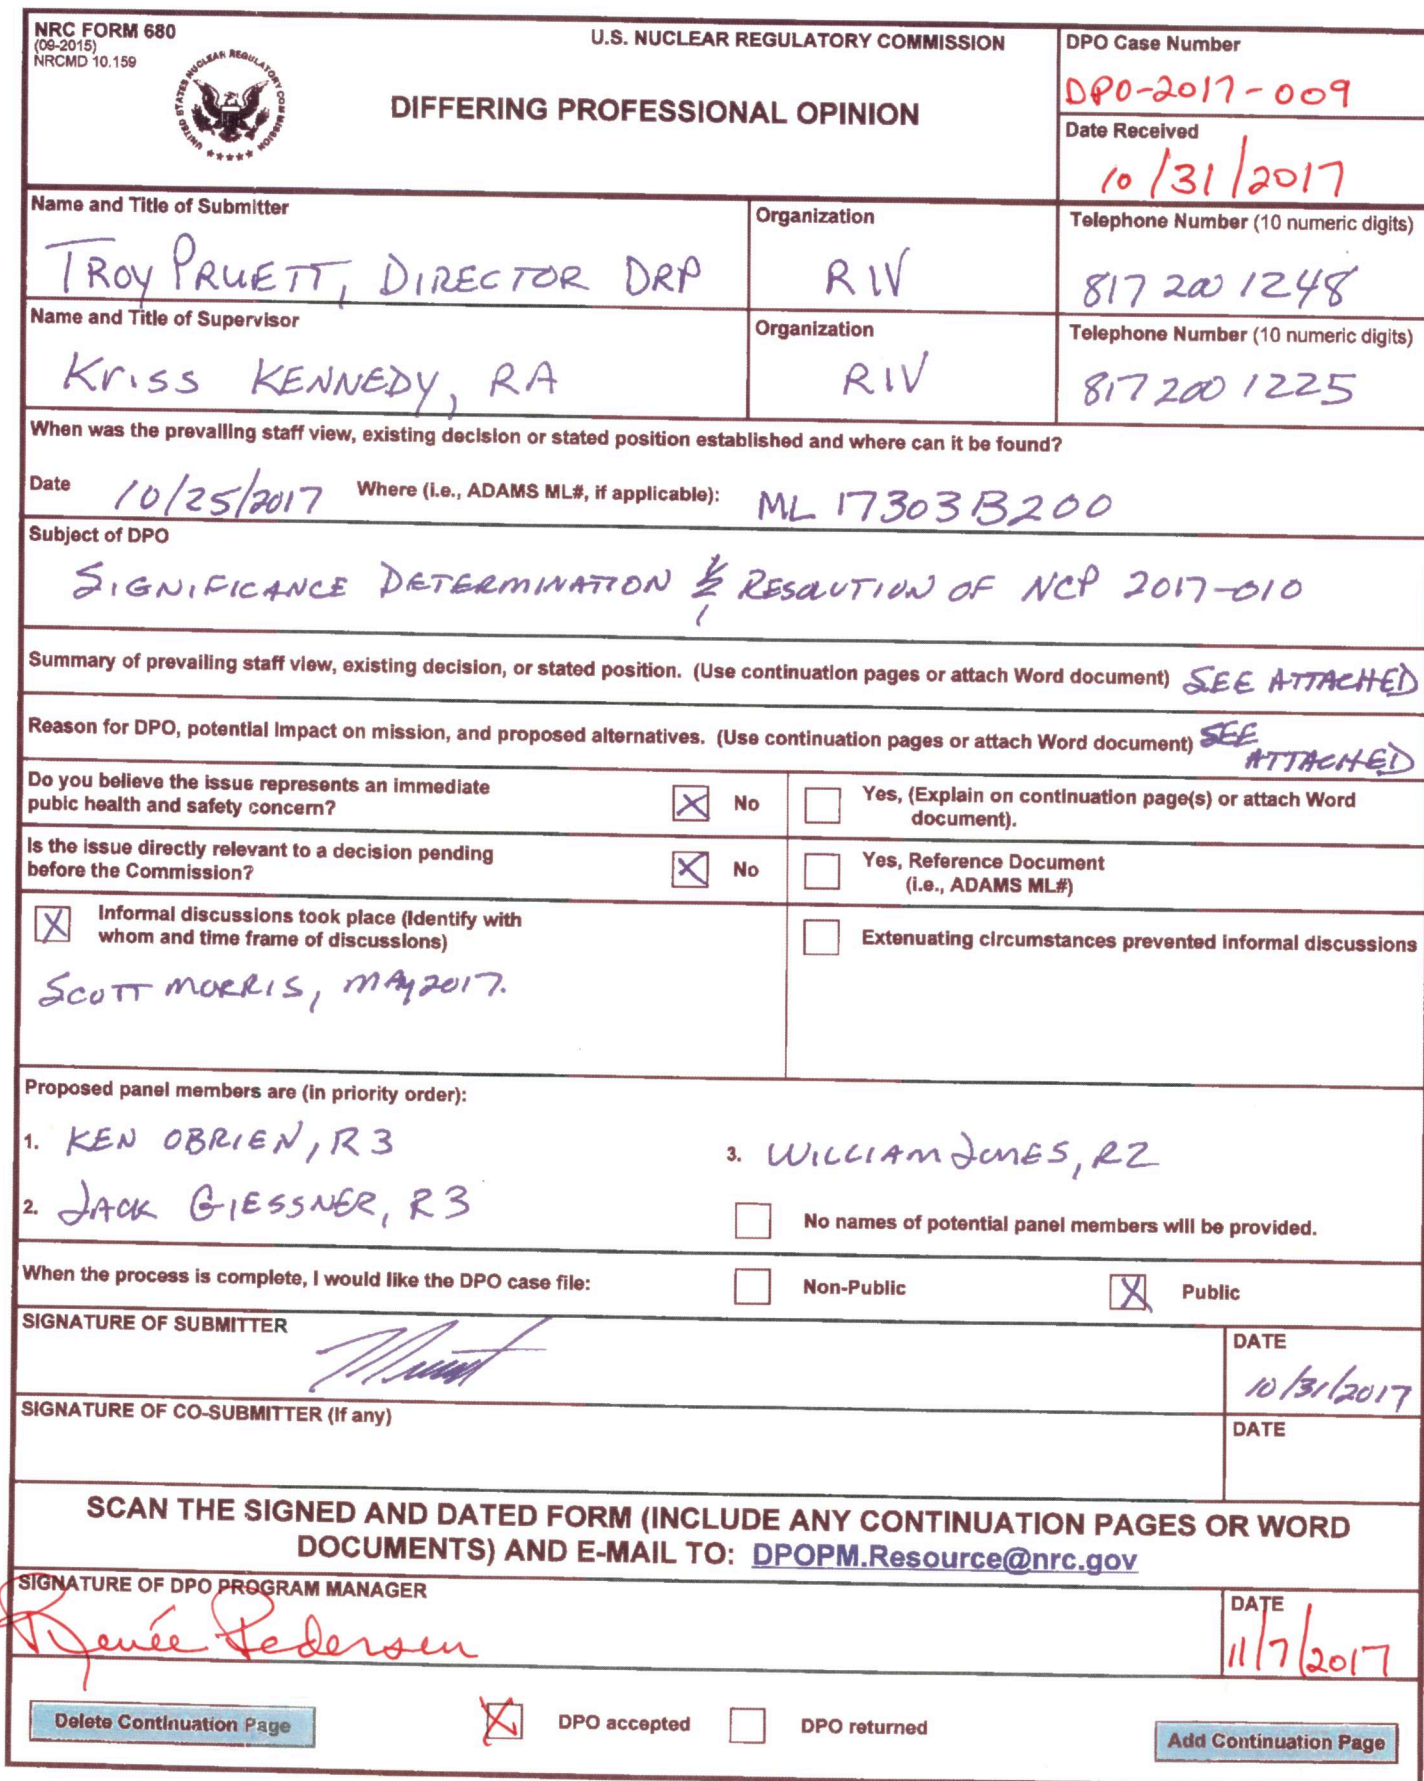 NRC FORM 680
(09-2015)
NRCMD 10.159
UNITED STATES NUCLEAR REGULATORY COMMISSION
U.S. NUCLEAR REGULATORY COMMISSION
DIFFERING PROFESSIONAL OPINION
DPO Case Number
DPO-2017-009
Date Received
10/31/2017
Name and Title of Submitter
TROY PRUETT, DIRECTOR DRP
Organization
RIV
Telephone Number (10 numeric digits)
817 200 1248
Name and Title of Supervisor
Kriss KENNEDY, RA
Organization
RIV
Telephone Number (10 numeric digits)
817 200 1225
When was the prevailing staff view, existing decision or stated position established and where can it be found?
Date 10/25/2017 Where (i.e., ADAMS ML#, if applicable): ML 17303B200
Subject of DPO
SIGNIFICANCE DETERMINATION & RESOLUTION OF NCP 2017-010
Summary of prevailing staff view, existing decision, or stated position. (Use continuation pages or attach Word document) SEE ATTACHED
Reason for DPO, potential impact on mission, and proposed alternatives. (Use continuation pages or attach Word document) SEE
ATTACHED
Do you believe the issue represents an immediate
pubic health and safety concern?
X No
Yes, (Explain on continuation page(s) or attach Word
document).
Is the issue directly relevant to a decision pending
before the Commission?
X No
Yes, Reference Document
(i.e., ADAMS ML#)
X Informal discussions took place (Identify with
whom and time frame of discussions)
SCOTT MORRIS, MAY 2017.
Extenuating circumstances prevented informal discussions
Proposed panel members are (in priority order):
1. KEN OBRIEN, R3
2. JACK GIESSNER, R3
3. WILLIAM JONES, R2
No names of potential panel members will be provided.
When the process is complete, I would like the DPO case file:
Non-Public
X Public
SIGNATURE OF SUBMITTER
DATE
10/31/2017
SIGNATURE OF CO-SUBMITTER (If any)
DATE
SCAN THE SIGNED AND DATED FORM (INCLUDE ANY CONTINUATION PAGES OR WORD
DOCUMENTS) AND E-MAIL TO: DPOPM.Resource@nrc.gov
SIGNATURE OF DPO PROGRAM MANAGER
Renée Pedersen
DATE
11/7/2017
Delete Continuation Page
X DPO accepted
DPO returned
Add Continuation Page